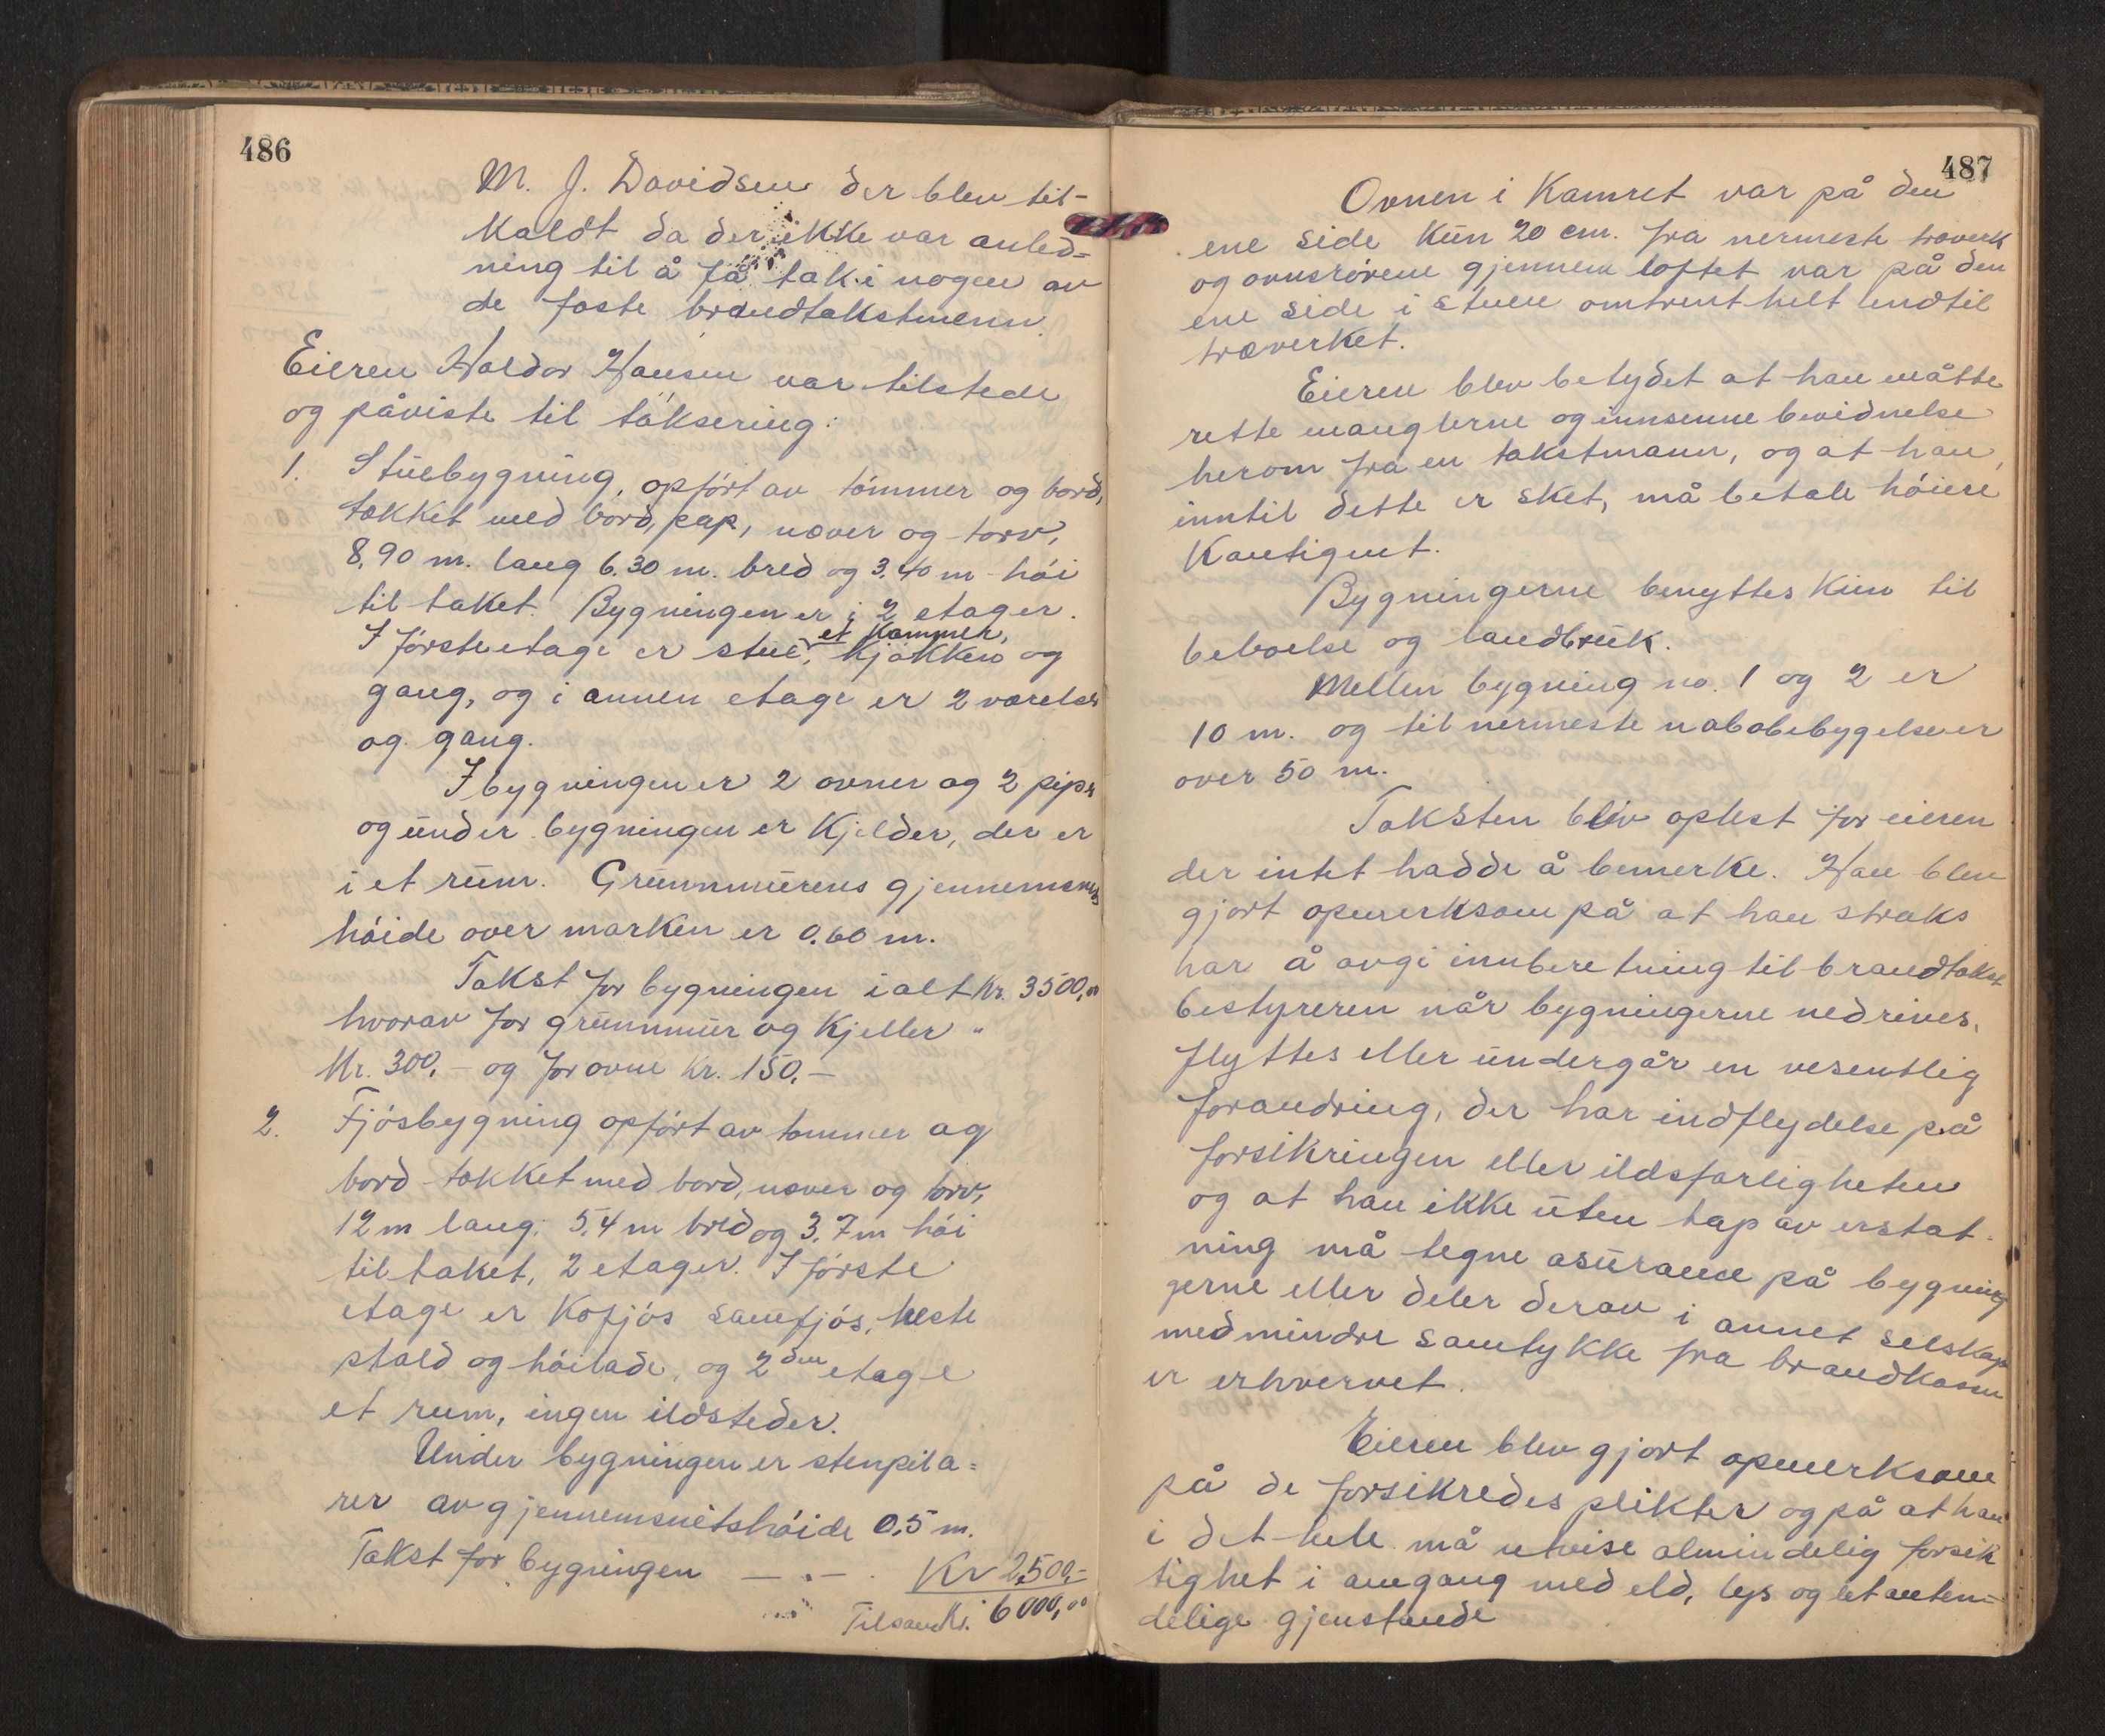 486
M. J. Davidsen der blev til-
kaldt da der ikke var anled=
ning til å få tak i nogen av
de faste brandtakstmenn.
Eieren Haldor Hansen var tilstede
og påviste til taksering:
1. Stuebygning, opført av tømmer og bord,
tækket med bord, pap, næver og torv,
8,90 m. lang 6.30 m. bred og 3,40 m høi
til taket. Bygningen er i 2 etager.
et kammer,
I første etage er stue, kjøkken og
gang, og i annen etage er 2 værelser
og gang.
I bygningen er 2 ovner og 2 piper
og under bygningen er kjelder, der er
i et rum. Grunnmurens gjennemsnits
høide over marken er 0,60 m.
Takst for bygningen ialt kr. 3500,00
hvorav for grunnmur og kjeller "
Kr. 300,- og for ovne kr. 150,-
2. Fjøsbygning opført av tømmer og
bord tækket med bord, næver og torv,
12 m lang, 5,4 m bred og 3,7 m høi
til taket, 2 etager. I første
etage er kofjøs sauefjøs, heste
stald og høilade, og 2den etage
et rum, ingen ildsteder.
Under bygningen er stenpila=
rer av gjennemsnitshøide 0,5 m.
Takst for bygningen — . — . Kr 2,500,-
Tilsam. Kr. 6000,00
487
Ovnen i Kamret var på den
ene side kun 20 cm. fra nermeste træverk
og ovnsrørene gjennem loftet var på den
ene side i stuen omtrent helt indtil
træverket.
Eieren blev betydet at han måtte
rette manglerne og innsenne bevidnelse
herom fra en takstmann, og at han,
inntil dette er sket, må betale høiere
Kontigent.
Bygningerne benyttes kun til
beboelse og landbruk.
Mellem bygning no. 1 og 2 er
10 m. og til nermeste nabobebygelse er
over 50 m.
Taksten blev oplest for eieren
der intet hadde å bemerke. Han blev
gjort opmerksom på at han straks
har å avgi innberetning til brandtakst
bestyreren når bygningerne nedrives,
flyttes eller undergår en vesentlig
forandring, der har indflydelse på
forsikringen eller ildsfarligheten
og at han ikke uten tap av erstat-
ning må tegne asurance på bygnin
gerne eller deler derav i annet selskap
medmindre samtykke fra brandkassen
er erhvervet.
Eieren blev gjort opmerksom
på de forsikredes plikter og på at han
i det hele må utvise almindelig forsik
tighet i omgang med eld, lys og let anten=
delige gjenstande